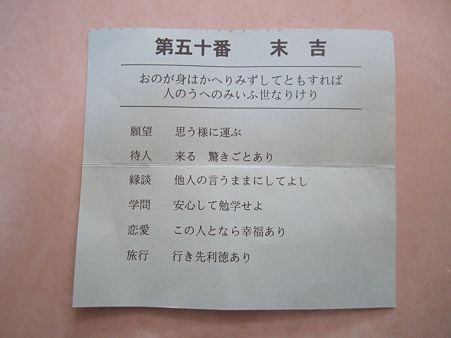 第五十番　末吉
おのが身はかへりみずしてともすれば
人のうへのみいふ世なりけり
願望　思う様に運ぶ
待人　来る　驚きごとあり
縁談　他人の言うままにしてよし
学問　安心して勉学せよ
恋愛　この人となら幸福あり
旅行　行き先利徳あり